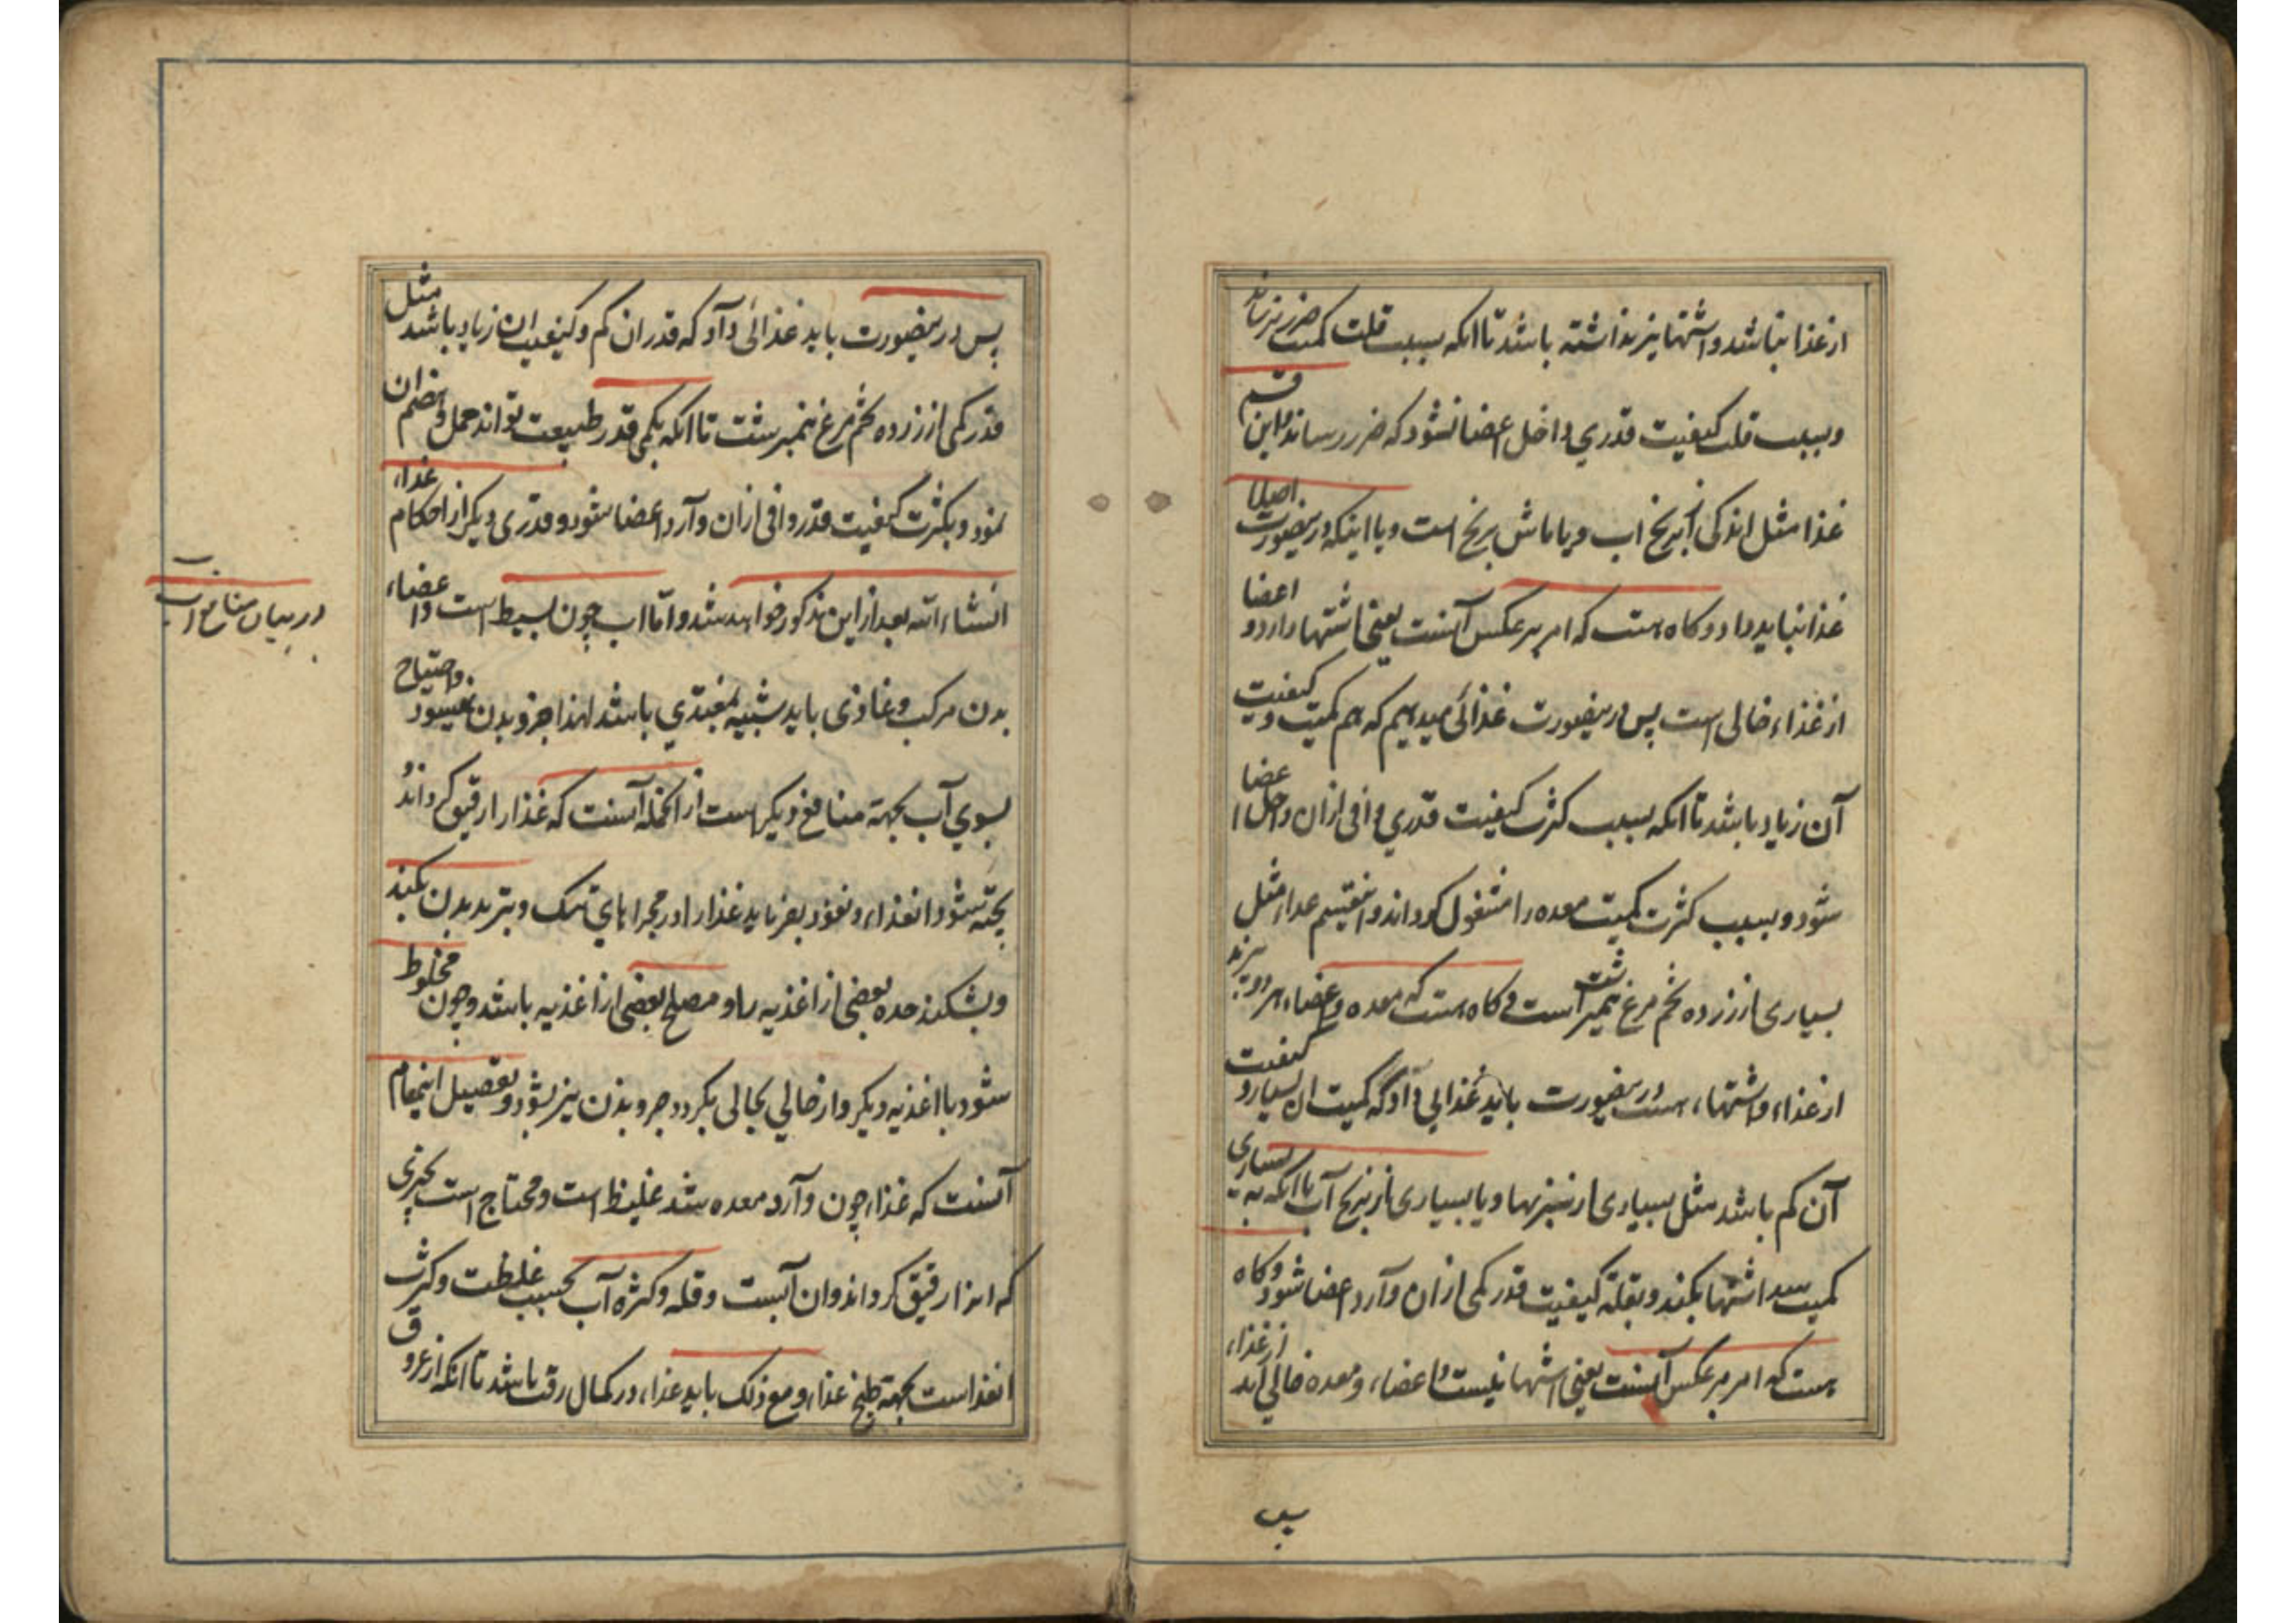 از غذا نباشد و اشتها نیز نداشته باشد تا انکه بسبب قلت کمیت ضرر نرساند
و بسبب قلت کیفیت قدری داخل اعضا نشود که ضرر رساند و این قسم
غذا مثل اندکی از برنج اب و یا ماش برنج است و یا اینکه درینصورت اصلا
غذا نباید داد و کاه هست که امر بر عکس آنست یعنی اشتها دارد و اعضا
از غذاء خالی است پس درینصورت غذائی میدهیم که هم کمیت و کیفیت
آن زیاد باشد تا انکه بسبب کثرت کیفیت قدری وافی ازان داخل اعضا
شود و بسبب کثرت کمیت معده را مشغول کرداند و اینقسم غذا مثل
بسیاری از زرده تخم مرغ نیمبرشت است و کاه هست که معده و اعضاء هر دو پرند
از غذاء و اشتهاء هست درینصورت باید غذایی داد که کمیت ان بسیار و کیفیت
آن کم باشد مثل بسیاری از سبزیها و یا بسیاری از برنج آب تا انکه به بسیاری
کمیت سد اشتها بکند و بقلة کیفیت قدر کمی ازان وآرد اعضا شود و کاه
هست که امر بر عکس آنست یعنی اشتها نیست و اعضاء و معده خالی اند از غذاء
پس
پس درینصورت باید غذائی داد که قدر ان کم و کیفیت ان زیاد باشد مثل
قدر کمی از زرده تخم مرغ نیمبرشت تا انکه بکمی قدر طبیعت تواند حمل و هضم ان
نمود و بکثرت کیفیت قدر وافی ازان وآرد اعضا شود و قدری دیکر از احکام غذاء
انشاء الله بعد از این مذکور خواهد شد و امّا اب چون بسیط است و اعضاء
بدن مرکب و غاذی باید شبیه بمغتذی باشد لهذا جزو بدن نمیشود و احتیاج
بسوی آب بجهة منافع دیکر است از انجمله آنست که غذا را رقیق کرداند و
پخته شود انغذاء و نفوذ بفرماید غذا را در مجراهای تنک و تبرید بدن بکند
و بشکند حده بعضی از اغذیه را و مصلح بعضی از اغذیه باشد و چون مخلوط
شود با اغذیه دیکر و از حالی بحالی بکردد جزو بدن نیز بشود و تفصیل اینمقام
آنست که غذاء چون وآرد معده شد غلیظ است و محتاج است بچیزی
که انرا رقیق کرداند و ان آبست و قله و کثرة آب بحسب غلظت و کثرت
انغذا است بجهة طبخ غذاء و مع ذلک باید غذاء در کمال رقت باشد تا انکه از عروق
در بیان منافع آب